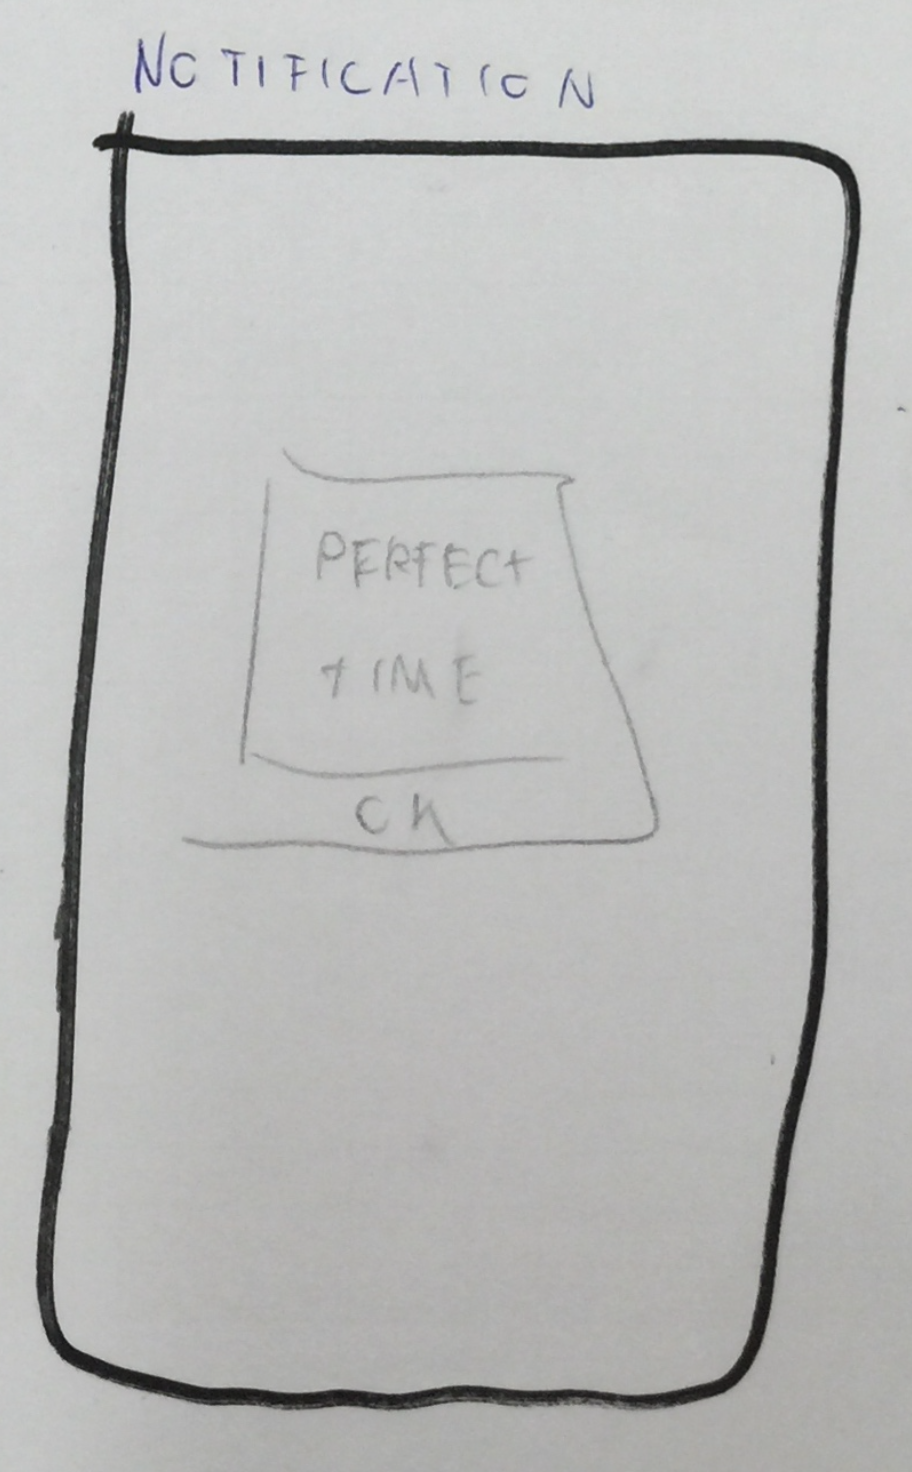 NOTIFICATION
PERFECT
TIME
OK